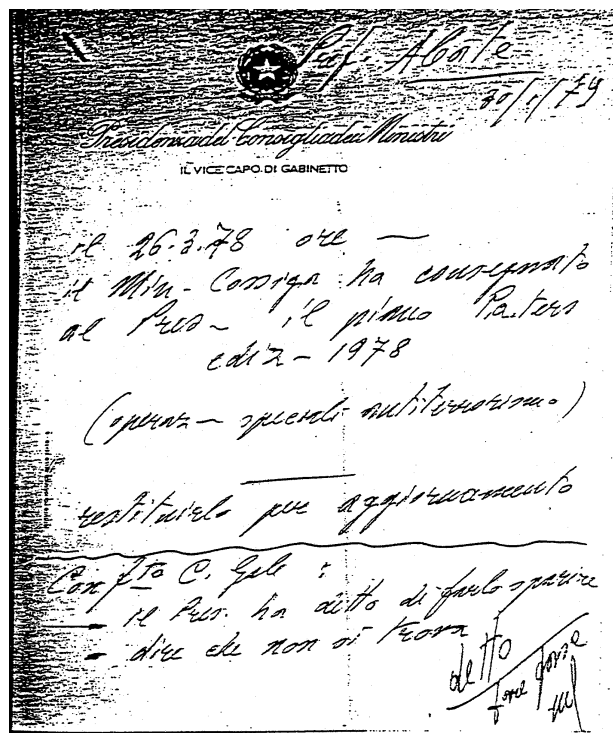 Prof. Abate
30/1/79
Presidenza del Consiglio dei Ministri
IL VICE CAPO DI GABINETTO
il 26.3.78 ore —
il Min. Cossiga ha consegnato
al Pres. il piano Paters
ediz - 1978
(operaz - speciali antiterrorismo)
restituirlo per aggiornamento
C. Gele :
il Pres. ha detto di farlo sparire
- dire che non si trova
detto